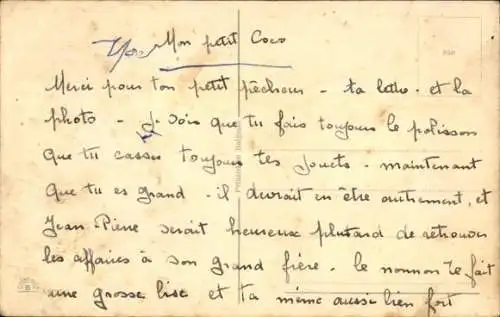 Mon petit Coco
Merci pour ton petit pêcheur - ta lettre - et la
photo - Je vois que tu fais toujours le polisson
que tu casses toujours tes jouets - maintenant
que tu es grand - il devrait en être autrement, et
Jean Pierre serait heureux plutard de retrouver
les affaires à son grand frère. le nonnon te fait
une grosse bise et ta mémé aussi bien fort